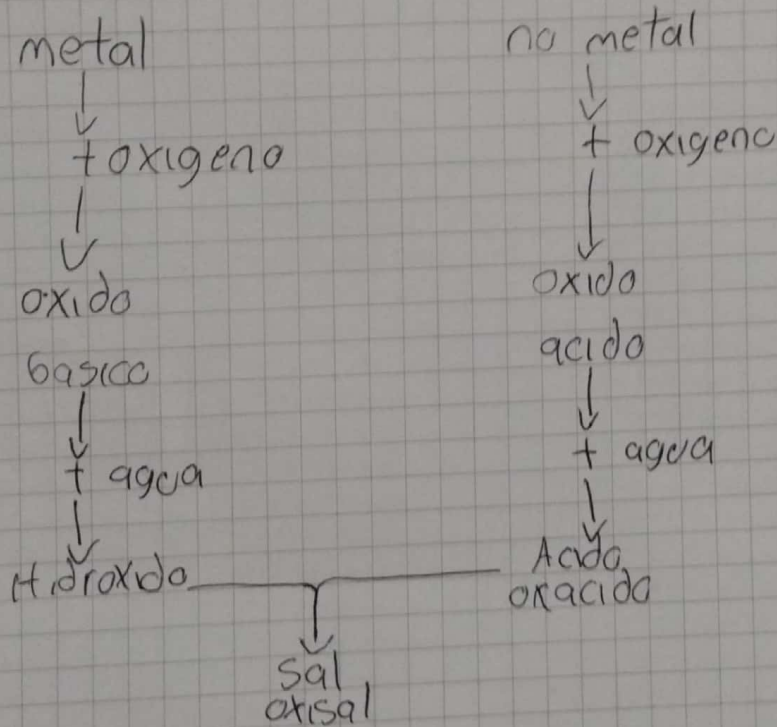 metal
+ oxigeno
oxido
basico
+ agua
Hidroxido
no metal
+ oxigeno
oxido
acido
+ agua
Acido
oxacido
Sal
oxisal